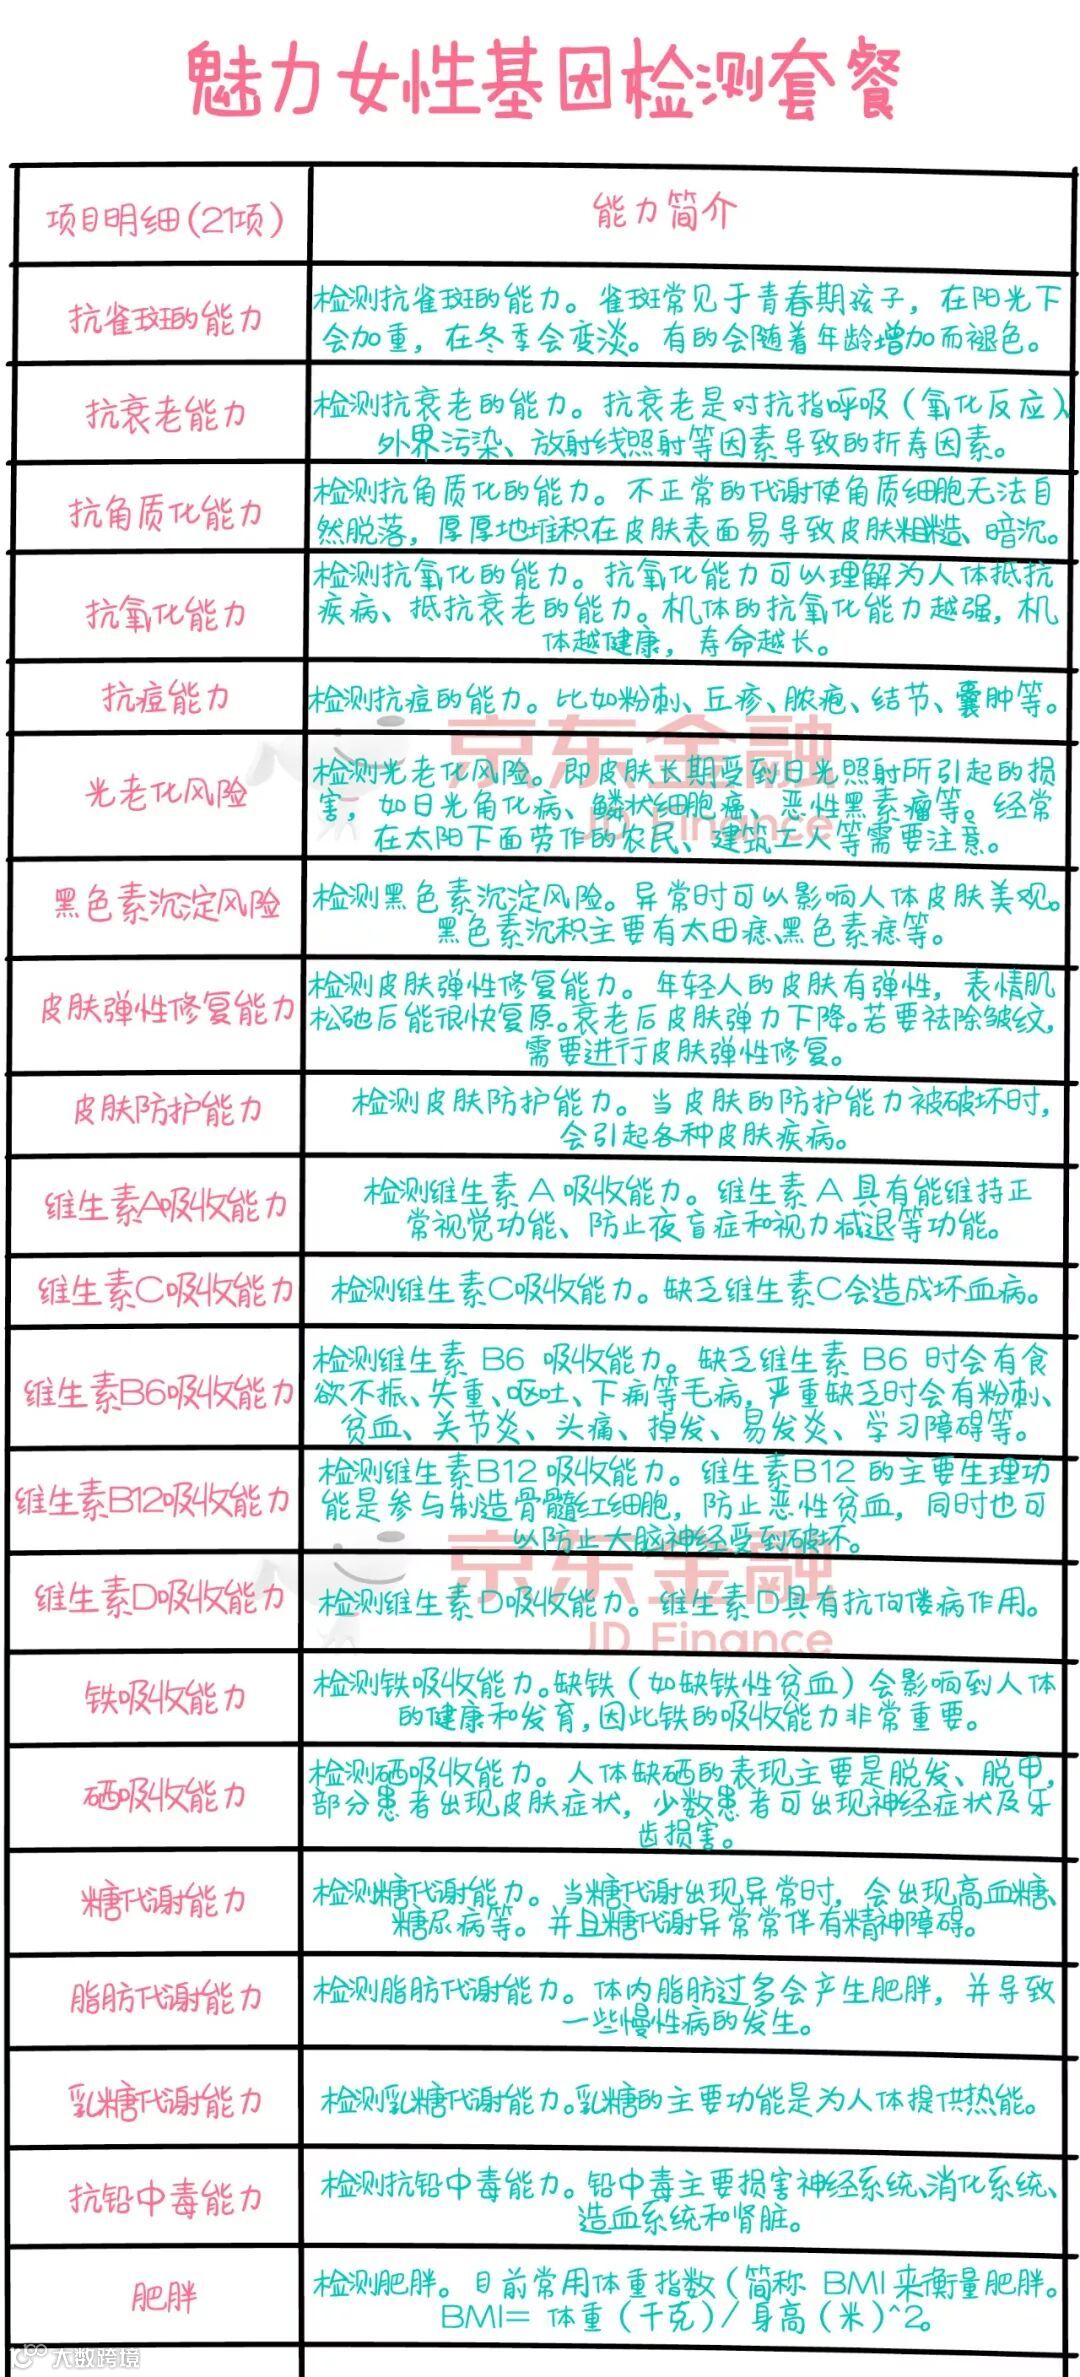 魅力女性基因检测套餐
项目明细(21项)
能力简介
抗雀斑的能力
检测抗雀斑的能力。雀斑常见于青春期孩子，在阳光下
会加重，在冬季会变淡。有的会随着年龄增加而褪色。
抗衰老能力
检测抗衰老的能力。抗衰老是对抗指呼吸（氧化反应）、
外界污染、放射线照射等因素导致的折寿因素。
抗角质化能力
检测抗角质化的能力。不正常的代谢使角质细胞无法自
然脱落，厚厚地堆积在皮肤表面易导致皮肤粗糙、暗沉。
抗氧化能力
检测抗氧化的能力。抗氧化能力可以理解为人体抵抗
疾病、抵抗衰老的能力。机体的抗氧化能力越强，机
体越健康，寿命越长。
抗痘能力
检测抗痘的能力。比如粉刺、丘疹、脓疱、结节、囊肿等。
京东金融
JD Finance
光老化风险
检测光老化风险。即皮肤长期受到日光照射所引起的损
害，如日光角化病、鳞状细胞癌、恶性黑素瘤等。经常
在太阳下面劳作的农民、建筑工人等需要注意。
黑色素沉淀风险
检测黑色素沉淀风险。异常时可以影响人体皮肤美观。
黑色素沉积主要有太田痣、黑色素痣等。
皮肤弹性修复能力
检测皮肤弹性修复能力。年轻人的皮肤有弹性，表情肌
松弛后能很快复原。衰老后皮肤弹力下降。若要祛除皱纹，
需要进行皮肤弹性修复。
皮肤防护能力
检测皮肤防护能力。当皮肤的防护能力被破坏时，
会引起各种皮肤疾病。
维生素A吸收能力
检测维生素 A 吸收能力。维生素 A 具有能维持正
常视觉功能、防止夜盲症和视力减退等功能。
维生素C吸收能力
检测维生素C吸收能力。缺乏维生素C会造成坏血病。
维生素B6吸收能力
检测维生素 B6 吸收能力。缺乏维生素 B6 时会有食
欲不振、失重、呕吐、下痢等毛病，严重缺乏时会有粉刺、
贫血、关节炎、头痛、掉发、易发炎、学习障碍等。
维生素B12吸收能力
检测维生素B12 吸收能力。维生素B12 的主要生理功
能是参与制造骨髓红细胞，防止恶性贫血，同时也可
以防止大脑神经受到破坏。
京东金融
JD Finance
维生素D吸收能力
检测维生素D吸收能力。维生素D具有抗佝偻病作用。
铁吸收能力
检测铁吸收能力。缺铁（如缺铁性贫血）会影响到人体
的健康和发育，因此铁的吸收能力非常重要。
硒吸收能力
检测硒吸收能力。人体缺硒的表现主要是脱发、脱甲，
部分患者出现皮肤症状，少数患者可出现神经症状及牙
齿损害。
糖代谢能力
检测糖代谢能力。当糖代谢出现异常时，会出现高血糖、
糖尿病等。并且糖代谢异常常伴有精神障碍。
脂肪代谢能力
检测脂肪代谢能力。体内脂肪过多会产生肥胖，并导致
一些慢性病的发生。
乳糖代谢能力
检测乳糖代谢能力。乳糖的主要功能是为人体提供热能。
抗铅中毒能力
检测抗铅中毒能力。铅中毒主要损害神经系统、消化系统、
造血系统和肾脏。
肥胖
检测肥胖。目前常用体重指数（简称 BMI 来衡量肥胖。
BMI= 体重（千克）/ 身高（米）^2。
大数跨境